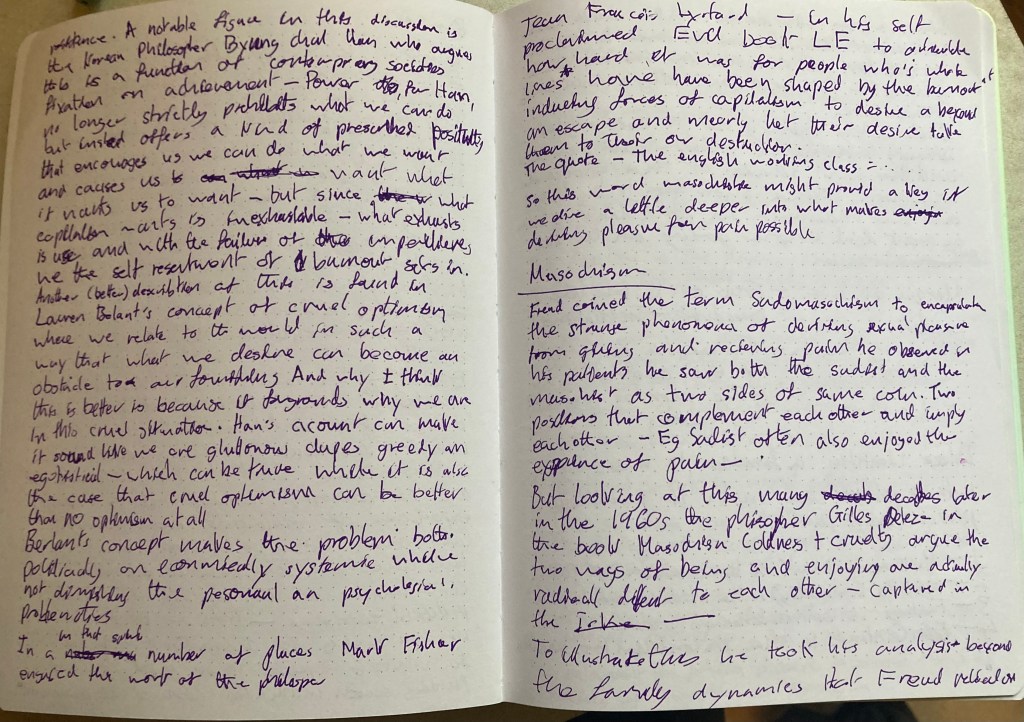 A notable figure in this discussion is
the Korean Philosopher Byung chul Han who argues
this is a function of contemporary societies
fixation on achievement – Power, Per Han,
no longer strictly prohibits what we can do
but insted offers a kind of prescribed positivity
that encourages us we can do what we want
and causes us to want what
it wants us to want – but since what
capitalism wants is inexhaustable – what exhausts
is us and with the failure of
the self resentment of burnout sets in.
Another (better) description of this is found in
Lauren Belant's concept of cruel optimism
where we relate to the world in such a
way that what we desire can become an
obsticle to our flourishing And why I think
this is better is because it foregrounds why we are
in this cruel situation. Han's account can make
it sound like we are gluttonow dupes greedy an
egotistical – which can be true while it is also
the case that cruel optimism can be better
than no optimism at all
Berlant's concept makes the problem both
politically an economically systemic while
not diminishing the personal an psychological
problematics
In a number of places Mark Fisher
in that spirit
engaged the work of the philosper
Jean Francois Lyotard – in his self
proclaimed Evil book LE to
how hard it was for people who's whole
lives have have been shaped by the burnout
inducing forces of capitalism to desire a beyond
an escape and nearly let their desire take
them to their own destruction.
The quote – The english working class = ..
So this word masochistic might provid a key if
we dive a little deeper into what makes
deriving pleasure from pain possible
Masochism
Freud coined the term Sadomasochism to encapsulate
the strange phenomona of deriving sexual pleasure
from giving and recieving pain he observed in
his patients he saw both the sadist and the
masochist as two sides of same coin. Two
positions that complement each other and imply
each other – Eg Sadist often also enjoyed the
experience of pain –
But looking at this many decades later
in the 1960s the philsopher Gilles Deleze in
the book Masochism Coldness + cruelty argue the
two ways of being and enjoying are actually
radicall diffent to each other – captured in
the
To illustrate this he took his analysis beyond
the family dynamics that Freud